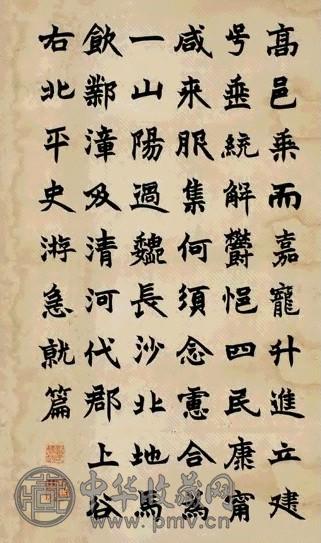 髙邑乘而嘉寵升進立建
号垂統解欝悒四民康甯
咸來服集何須念慮合爲
一山陽過魏長沙北地馬
飲鄴漳及清河代郡上谷
右北平史游急就篇
中华收藏网
www.pmv.cn